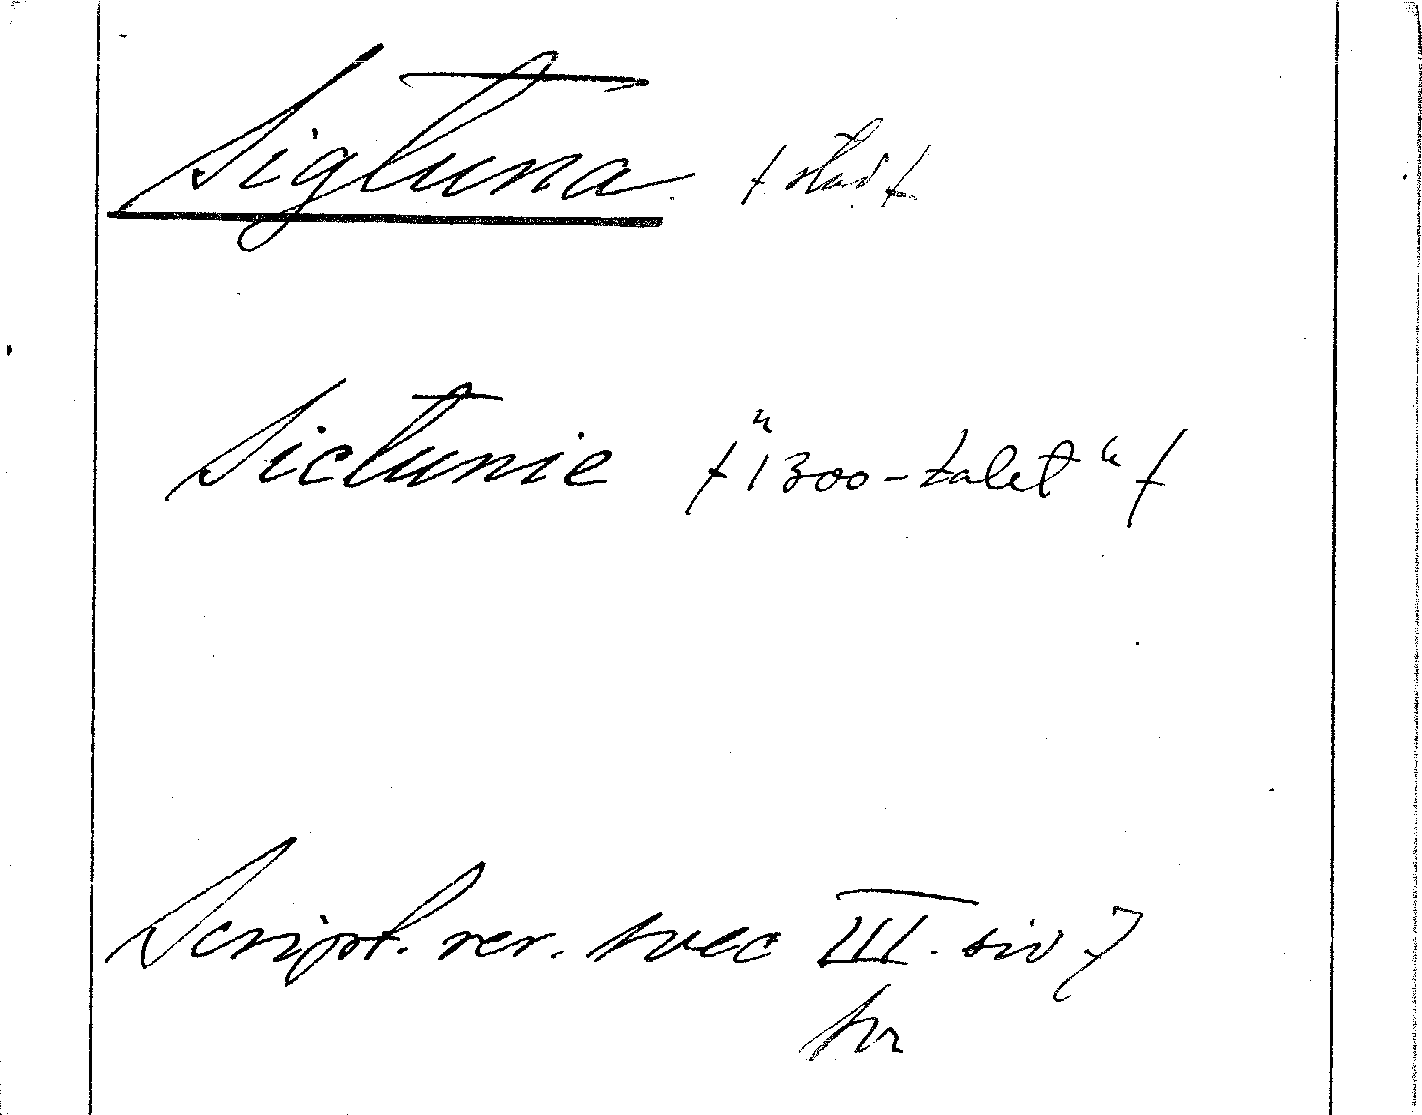 Sigtuna. (stad)
Sictunie ("1300-talet")
Script. rer. svec III. sid 7